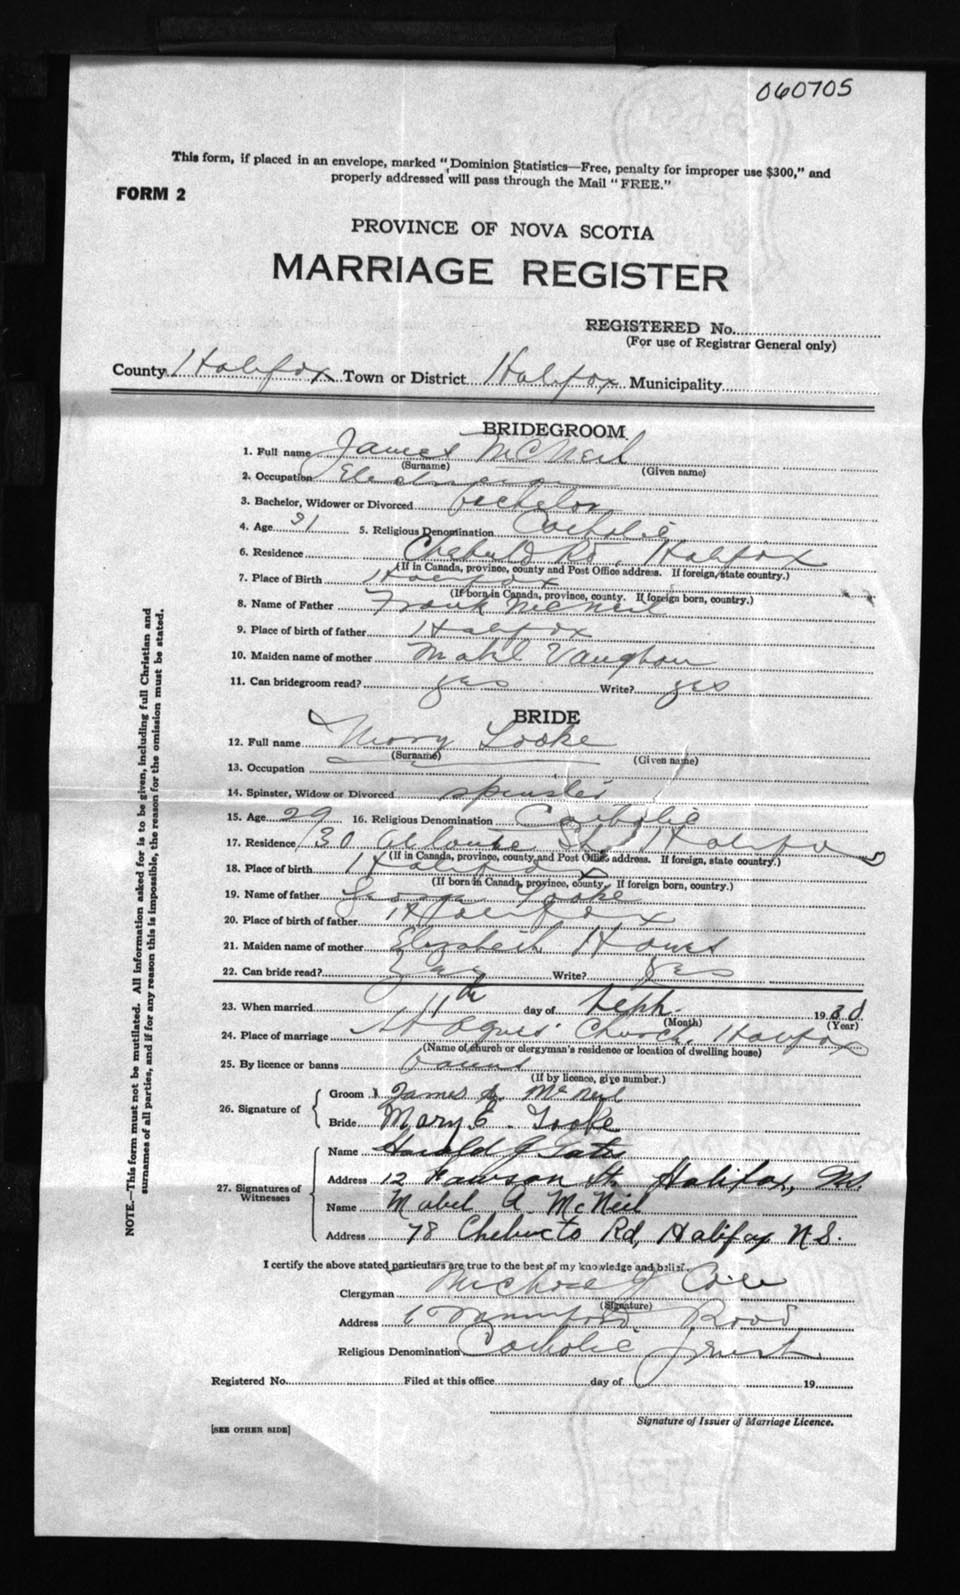 060705
This form, if placed in an envelope, marked "Dominion Statistics—Free, penalty for improper use $300," and
properly addressed will pass through the Mail "FREE."
FORM 2
PROVINCE OF NOVA SCOTIA
MARRIAGE REGISTER
REGISTERED No.
(For use of Registrar General only)
County Halifax Town or District Halifax Municipality
BRIDEGROOM
1. Full name James McNeil
(Surname) (Given name)
2. Occupation
3. Bachelor, Widower or Divorced bachelor
4. Age 31 5. Religious Denomination Catholic
6. Residence Rd, Halifax
(If in Canada, province, county and Post Office address. If foreign, state country.)
7. Place of Birth Halifax
(If born in Canada, province, county. If foreign born, country.)
8. Name of Father Frank McNeil
9. Place of birth of father Halifax
10. Maiden name of mother Vaughan
11. Can bridegroom read? yes Write? yes
BRIDE
12. Full name Mary Tooke
(Surname) (Given name)
13. Occupation
14. Spinster, Widow or Divorced spinster
15. Age 29 16. Religious Denomination Catholic
17. Residence St Halifax
(If in Canada, province, county and Post Office address. If foreign, state country.)
18. Place of birth Halifax
(If born in Canada, province, county. If foreign born, country.)
19. Name of father George Tooke
20. Place of birth of father Halifax
21. Maiden name of mother Elizabeth
22. Can bride read? yes Write? yes
23. When married 11th day of Sept. 1930
(Month) (Year)
24. Place of marriage St Agnes' Church, Halifax
(Name of church or clergyman's residence or location of dwelling house)
25. By licence or banns banns
(If by licence, give number.)
26. Signature of
Groom James McNeil
Bride Mary E. Tooke
27. Signatures of Witnesses
Name Harold J
Address 12 St. Halifax, N.S.
Name Mabel A. McNeil
Address 78 Chebucto Rd, Halifax N.S.
I certify the above stated particulars are true to the best of my knowledge and belief.
Clergyman
(Signature)
Address Road
Religious Denomination Catholic Priest
Registered No. Filed at this office day of 19
Signature of Issuer of Marriage Licence.
[SEE OTHER SIDE]
NOTE.—This form must not be mutilated. All information asked for is to be given, including full Christian and
surnames of all parties, and if for any reason this is impossible, the reason for the omission must be stated.